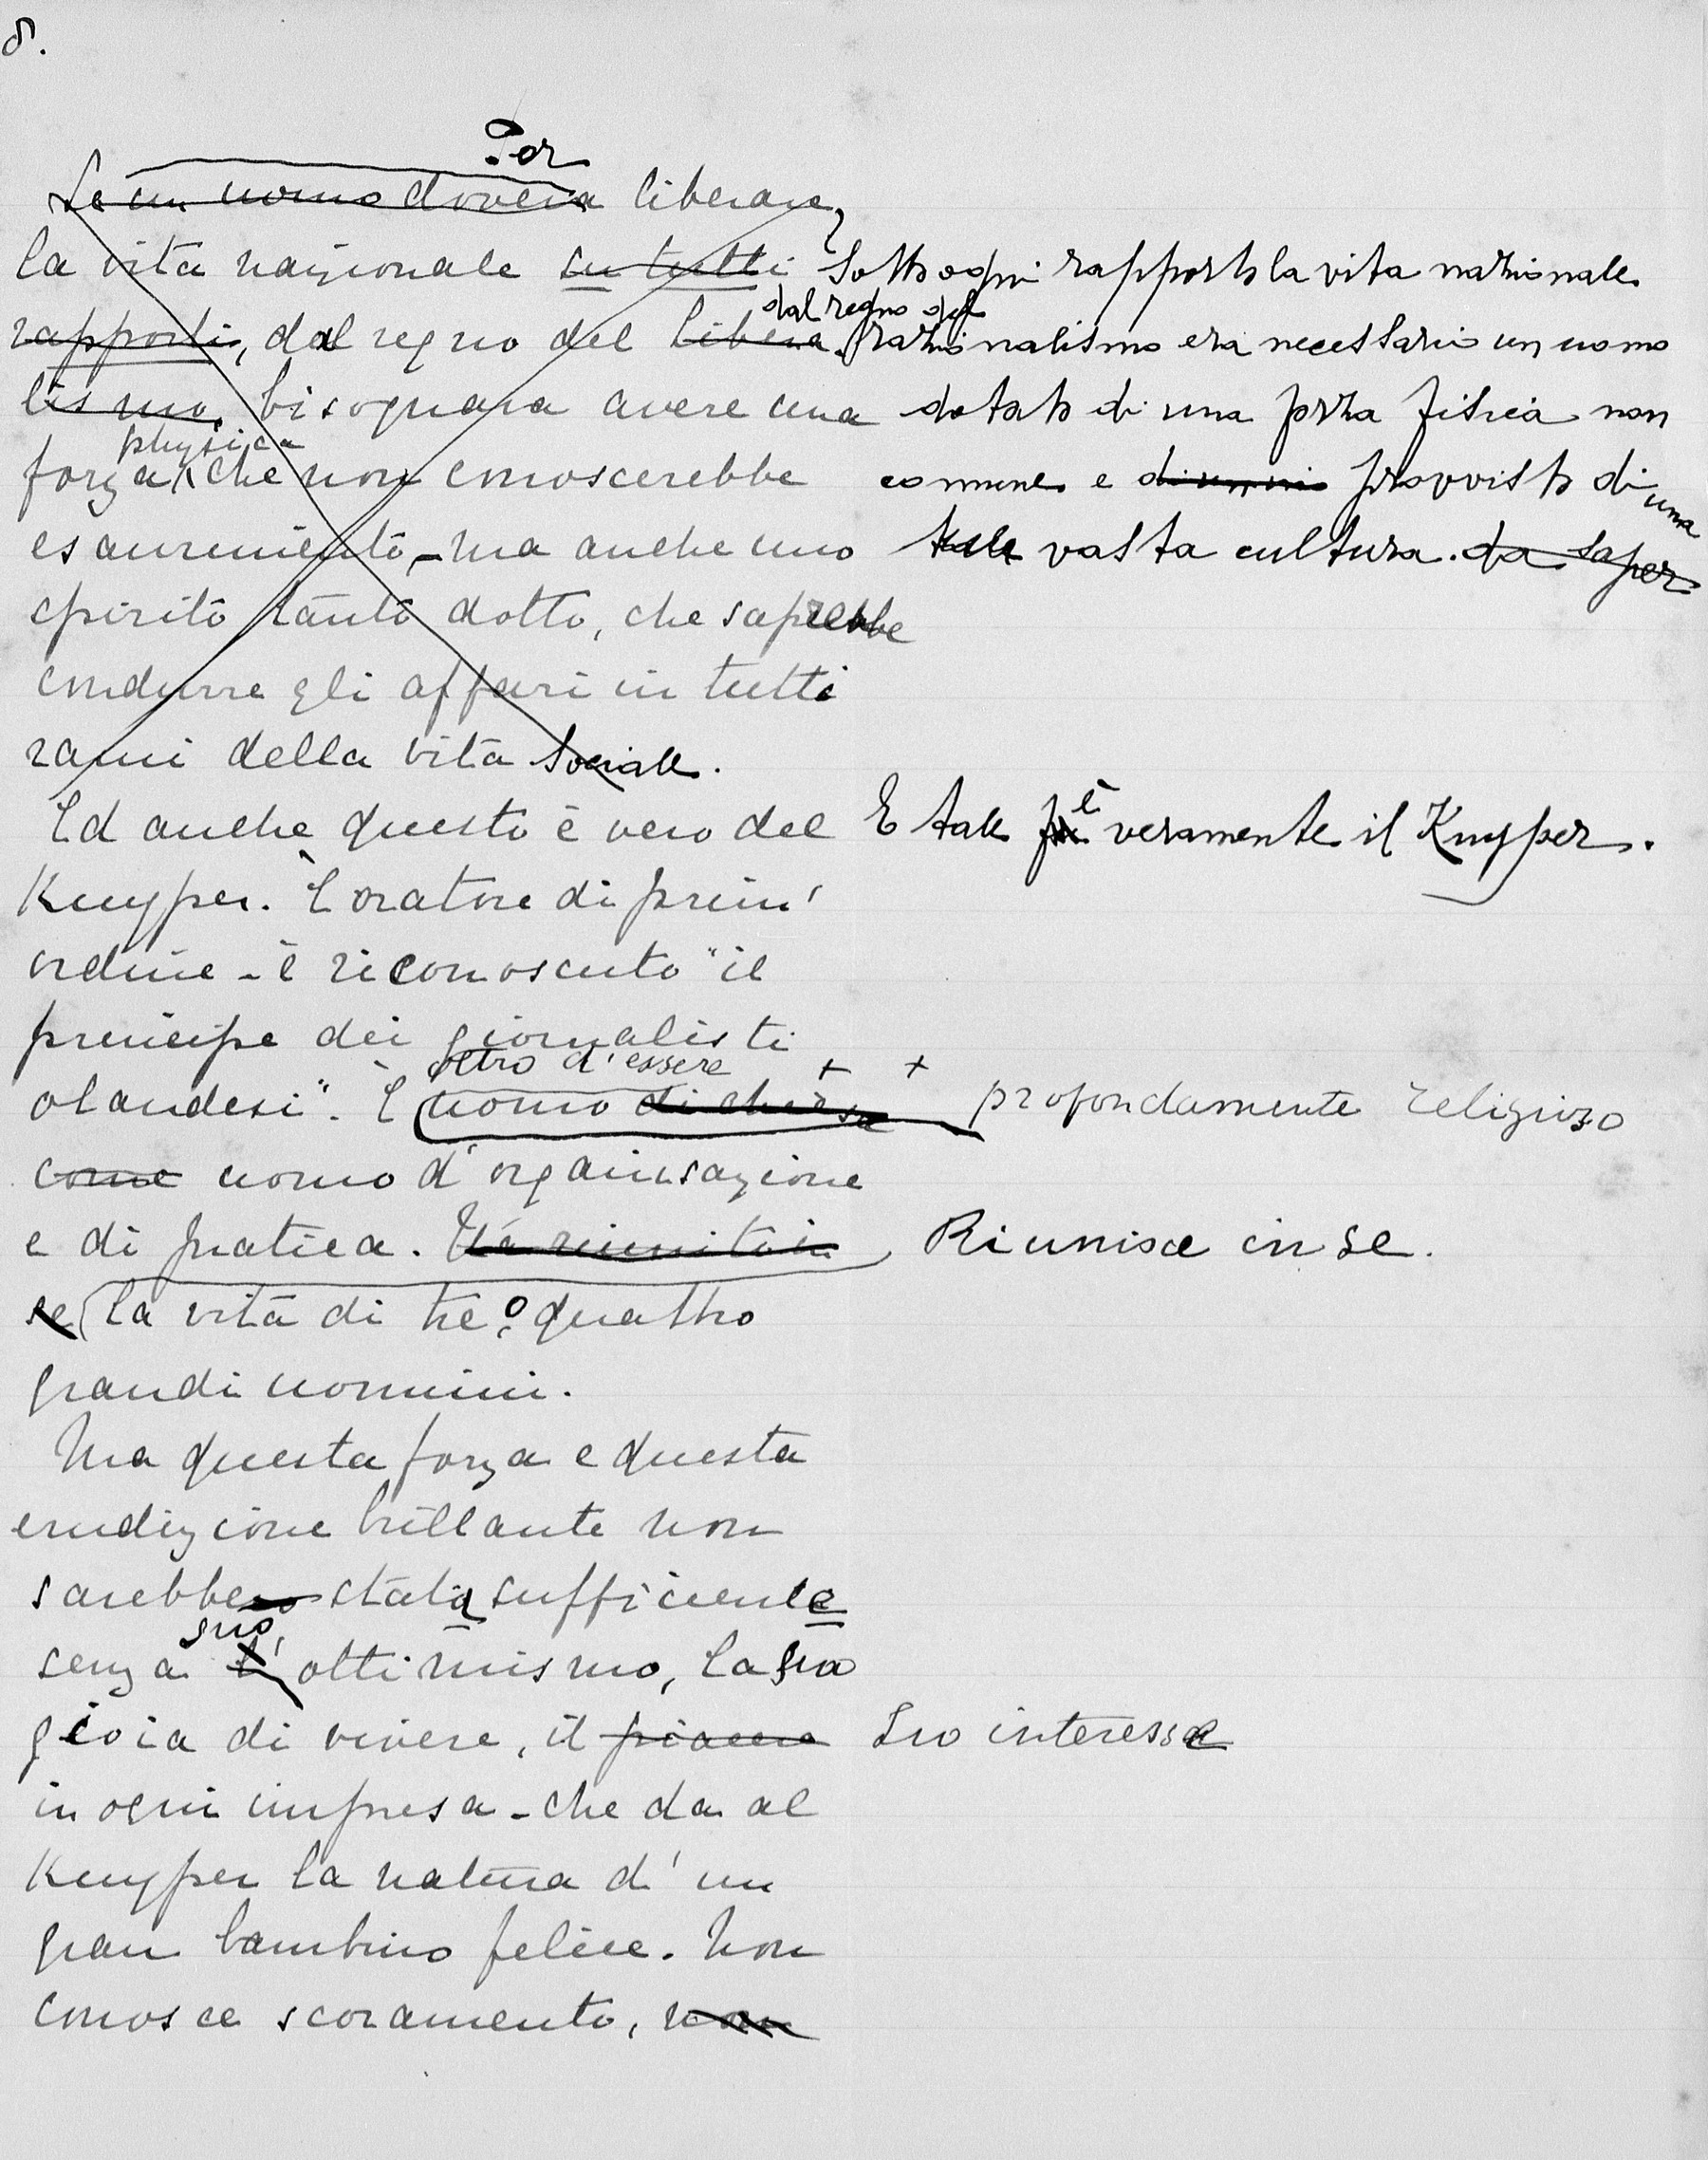 8.
Per
Se un uomo doveva liberare,
la vita nazionale su tutti sotto ogni rapporto la vita nazionale
dal regno del
rapporti, dal regno del libera razionalismo era necessario un uomo
lismo, bisognava avere una dotato di una forza fisica non
physica
forza che non conoscerebbe comune e provvisto di una
esaurimento, - ma anche uno tale vasta cultura. da saper
spirito tanto dotto, che saprebbe
condurre gli affari in tutti
rami della vita sociale.
Ed anche questo è vero del E tale è veramente il Kuyper.
Kuyper. È oratore di prim'
ordine - è riconosciuto "il
principe dei giornalisti
oltro d'essere + +
olandesi". È uomo di chiesa profondamente religioso
come uomo d'organisazione
e di pratica. Ha riunito in Riunisce in se.
se la vita di tre o quattro
grandi uomini.
Ma questa forza e questa
erudizione brillante non
sarebbero stata sufficiente
suo
senza l'ottimismo, la sua
gioia di vivere, il piacere suo interesse
in ogni impresa - che da al
Kuyper la natura d'un
gran bambino felice. Non
conosce scoramento, non